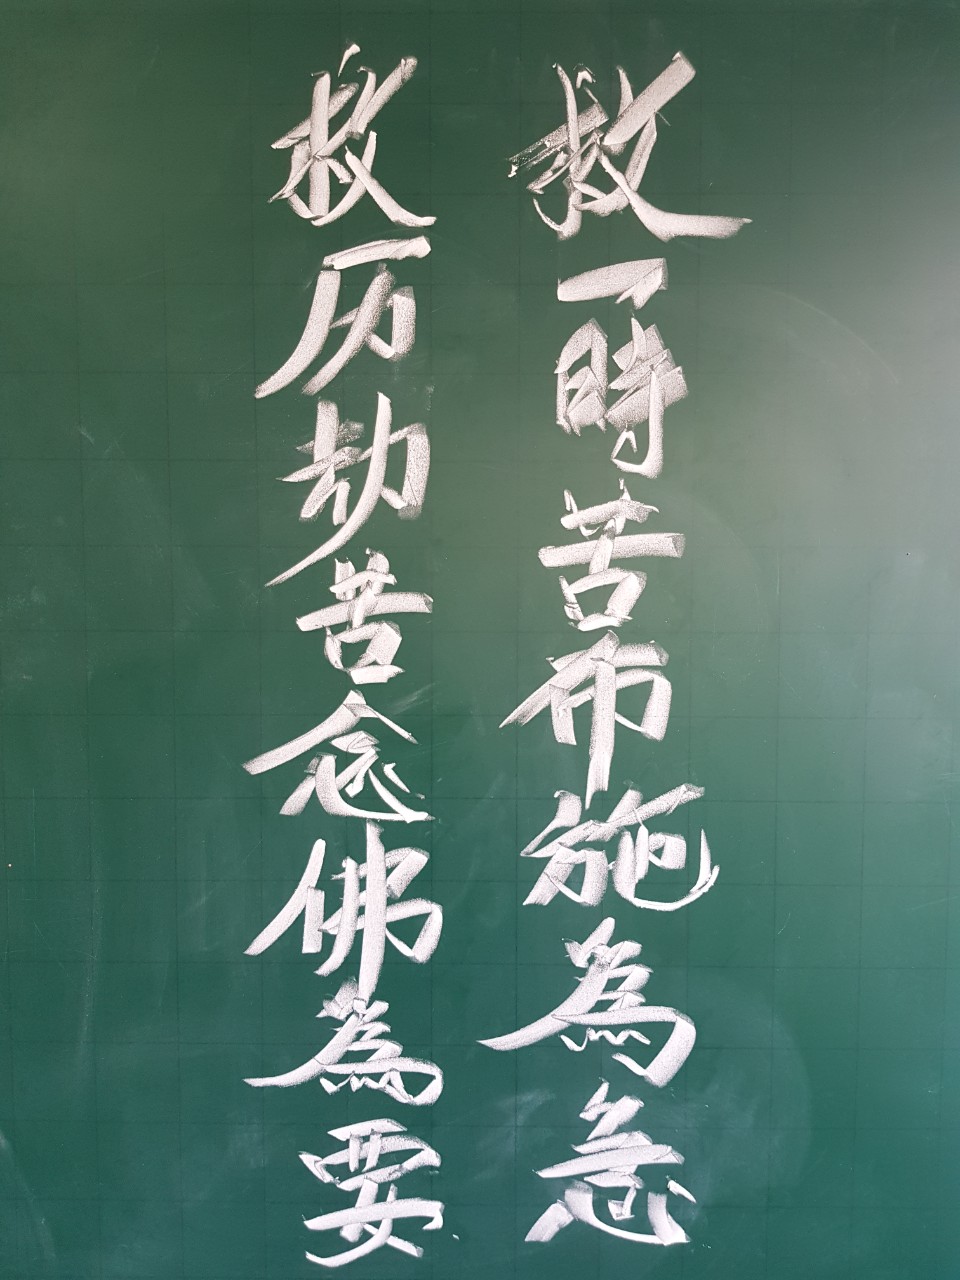 救一時苦布施為急
救历劫苦念佛為要